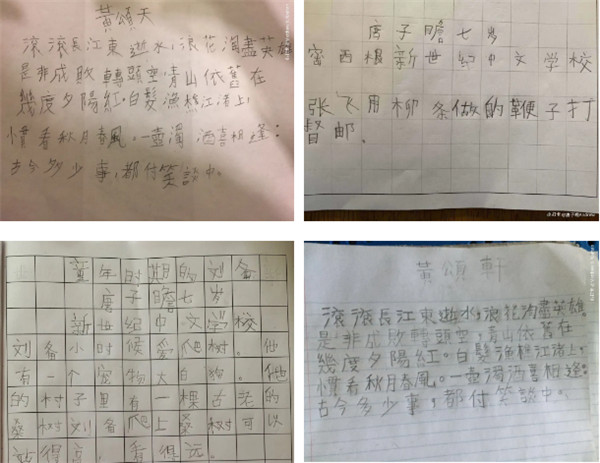 黃頌天
滾滾長江東逝水,浪花淘盡英雄
是非成敗轉頭空,青山依舊在
幾度夕陽紅.白髮漁樵江渚上,
慣看秋月春風。一壺濁酒喜相逢:
古今多少事,都付笑談中。
唐子瞻七岁
密西根新世纪中文学校
张飞用柳条做的鞭子打
督邮.
童年时期的刘备
唐子瞻七岁
新世纪中文学校
刘备小时候爱爬树.他
有一个宠物大白狗.他
的村子里有一棵古老的
桑树刘备爬上桑树可以
站得高,看得远.
黃頌軒
滾滾長江東逝水,浪花淘盡英雄
是非成敗轉頭空,青山依舊在
幾度夕陽紅。白髮漁樵江渚上,
慣看秋月春風。一壺濁酒喜相逢:
古今多少事,都付笑談中.